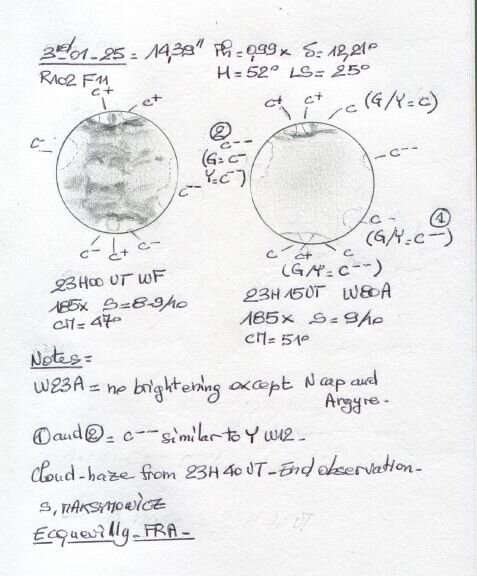 3rd/01-25 = 14,39" Ph = 0,99x δ = 12,21°
R102 F11 H = 52° LS = 25°
c+ c+
c-
c--
c- c+ c-
23H00 UT WF
185x S=8-9/10
CM = 47°
c+ c+ c (G/Y=c)
②
c--
(G=c-
Y=c-)
c--
c- ①
(G/Y=c--)
c c+ c
(G/Y=c--)
23H15UT W80A
185x S=9/10
CM=51°
Notes=
W23A = no brightening except N cap and
Argyre.
① and ② = c-- similar to Y W12-
Cloud-haze from 23H40 UT-End observation-
S, MAKSYMOWICZ
Ecquevilly-FRA-